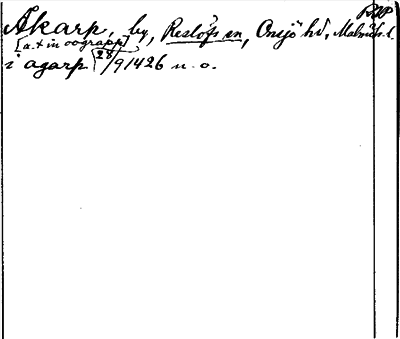 Åkarp, by, Reslöfs sn, Onsjö hd, Malmöh. l.
[a. + in oograpp]
i agarp 28/9 1426 u. o.